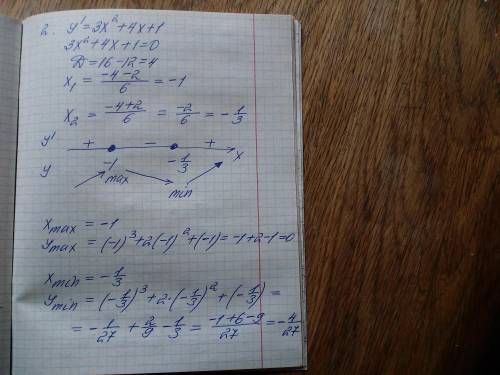 2. y' = 3x² + 4x + 1
3x² + 4x + 1 = 0
D = 16 - 12 = 4
x₁ = (-4-2)/6 = -1
x₂ = (-4+2)/6 = -2/6 = -1/3
y' + - +
-1 -1/3 x
y max min
x max = -1
y max = (-1)³ + 2(-1)² + (-1) = -1 + 2 - 1 = 0
x min = -1/3
y min = (-1/3)³ + 2·(-1/3)² + (-1/3) =
= -1/27 + 2/9 - 1/3 = (-1+6-9)/27 = -4/27